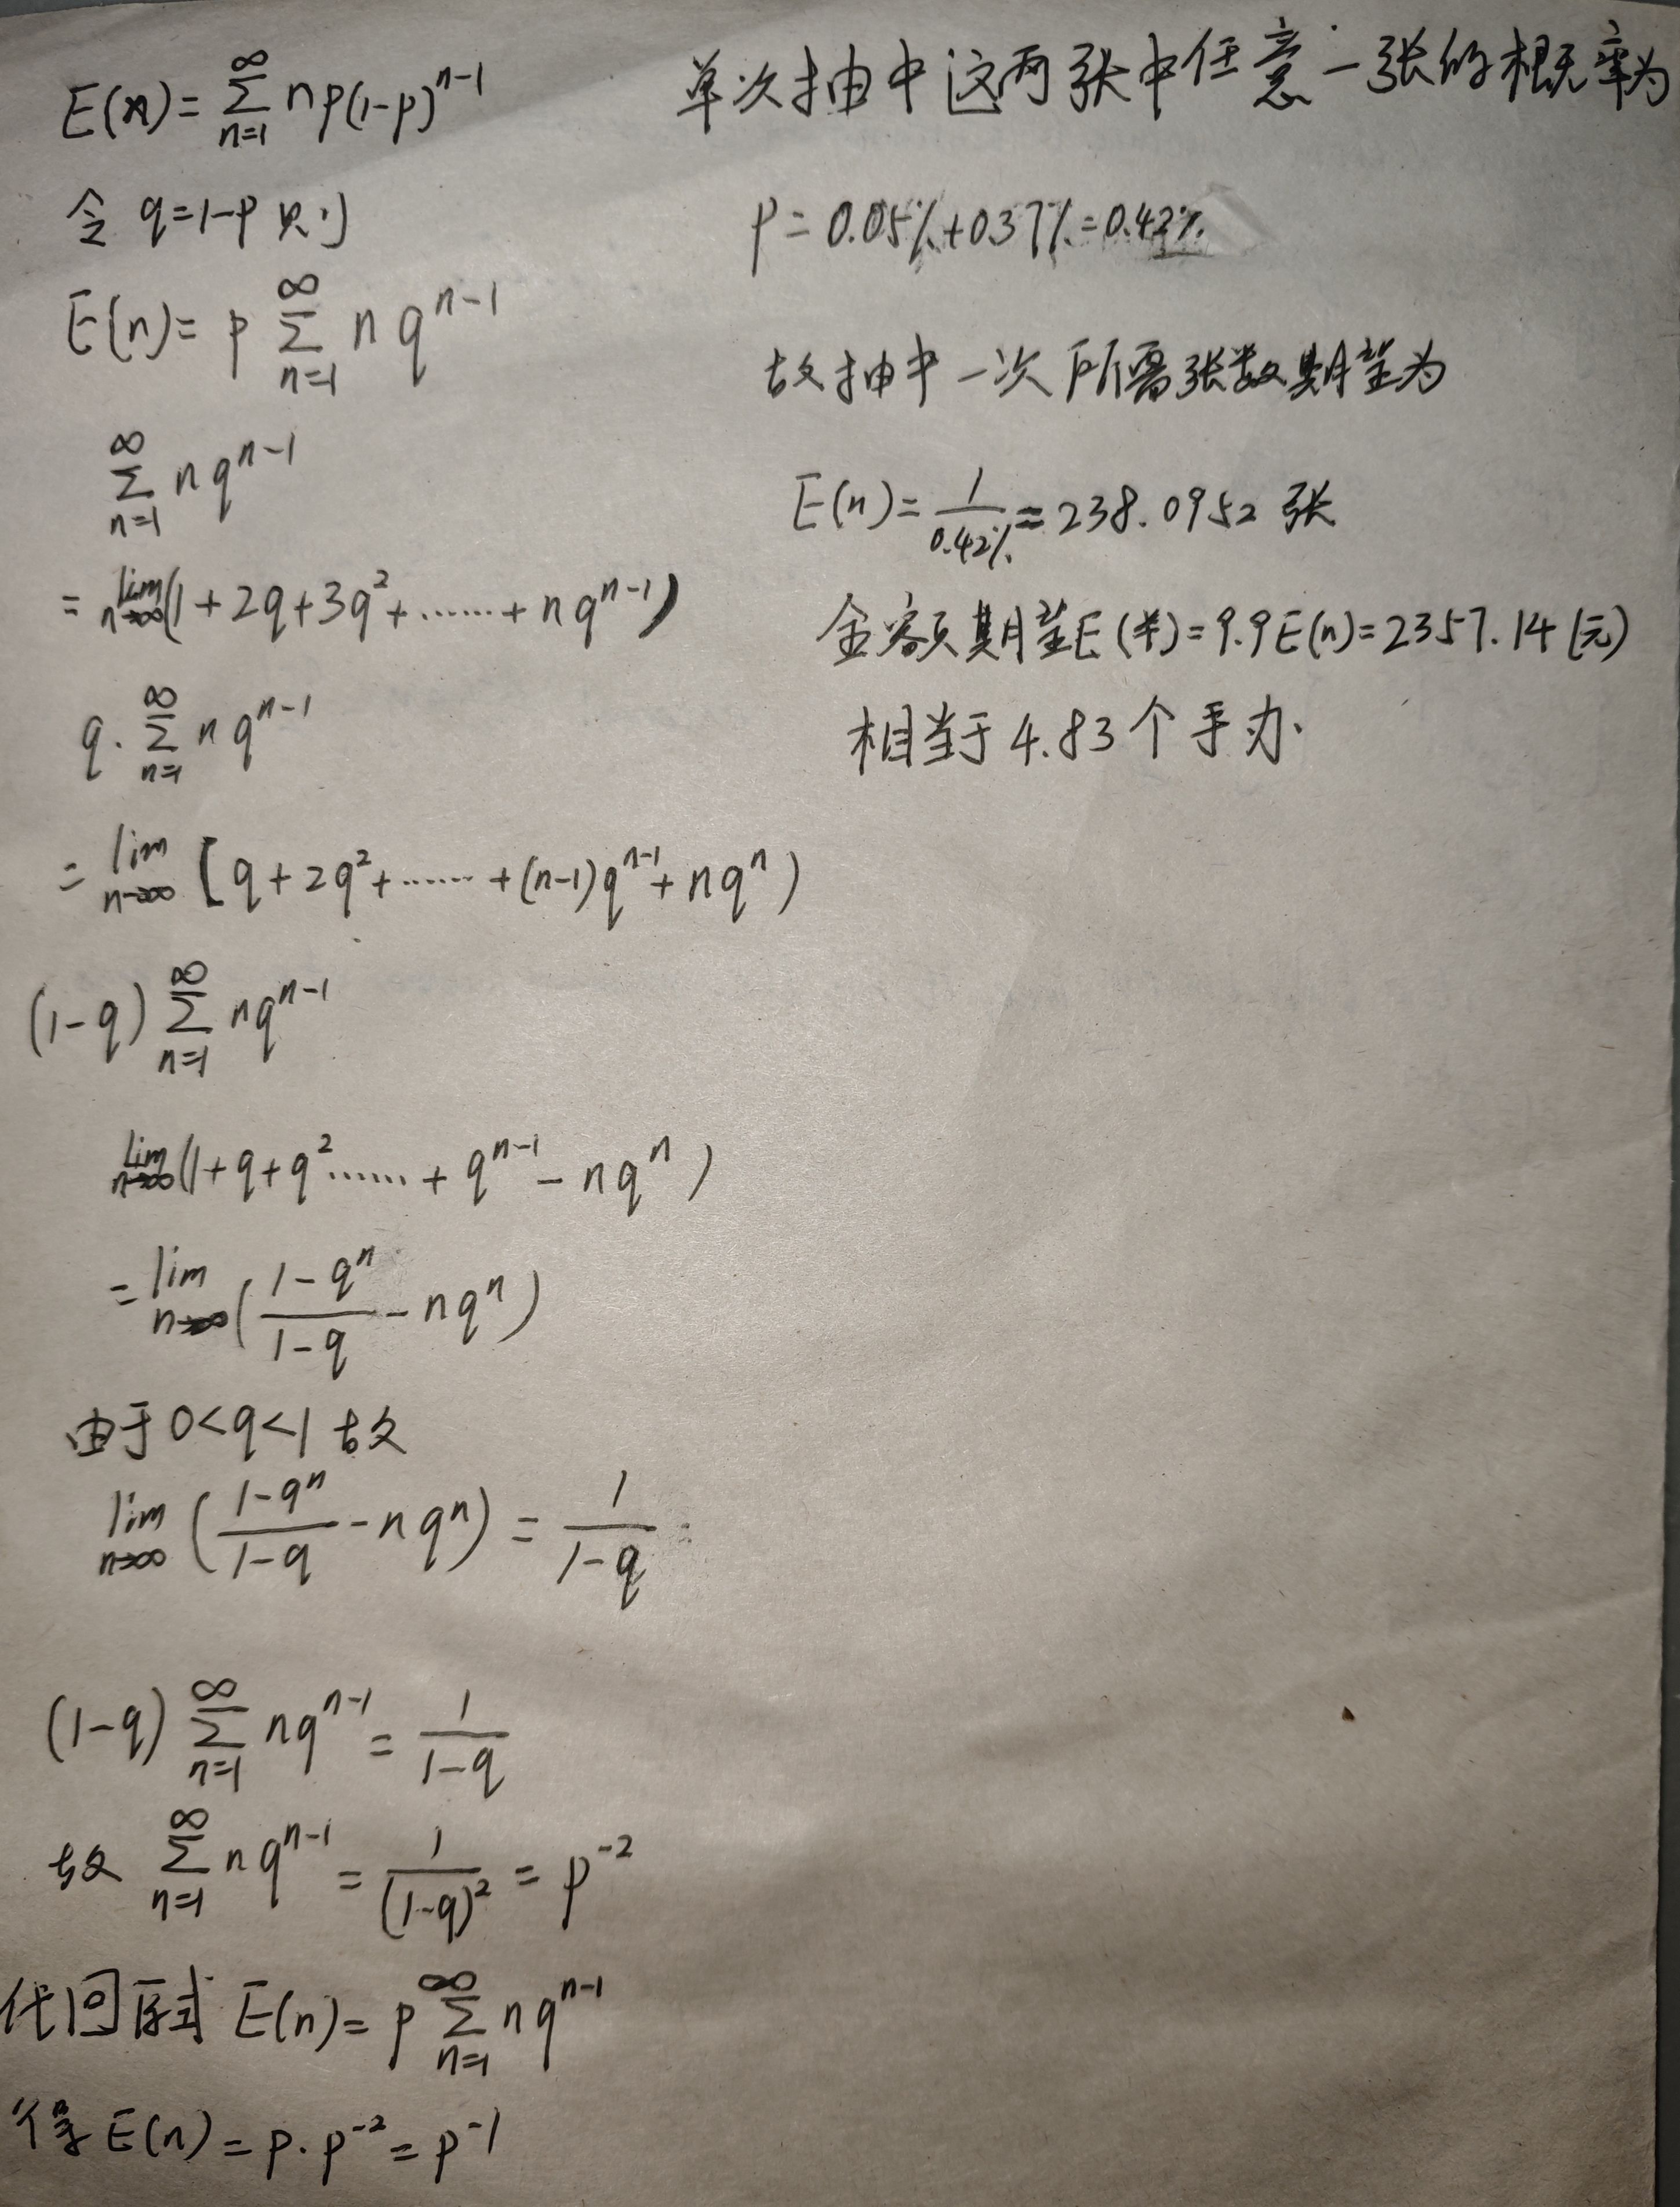 E(n)=∑_{n=1}^{∞} np(1-p)^{n-1}
令 q=1-p 则
E(n)= p ∑_{n=1}^{∞} n q^{n-1}
∑_{n=1}^{∞} n q^{n-1}
= lim_{n→∞}(1+2q+3q^2+……+nq^{n-1})
q·∑_{n=1}^{∞} n q^{n-1}
= lim_{n→∞} [q+2q^2+……+(n-1)q^{n-1}+nq^n)
(1-q)∑_{n=1}^{∞} nq^{n-1}
lim_{n→∞}(1+q+q^2……+q^{n-1}-nq^n)
=lim_{n→∞}(\frac{1-q^n}{1-q}-nq^n)
由于0<q<1 故
lim_{n→∞}(\frac{1-q^n}{1-q}-nq^n)=\frac{1}{1-q}
(1-q)∑_{n=1}^{∞} nq^{n-1}=\frac{1}{1-q}
故 ∑_{n=1}^{∞} nq^{n-1}=\frac{1}{(1-q)^2}=p^{-2}
代回原式 E(n)=p∑_{n=1}^{∞} nq^{n-1}
得E(n)=p·p^{-2}=p^{-1}
单次抽中这两张中任意一张的概率为
p=0.05%+0.37%=0.42%
故抽中一次所需张数期望为
E(n)=\frac{1}{0.42%}≈238.0952 张
金额期望E(¥)=9.9E(n)=2357.14(元)
相当于4.83个手办.